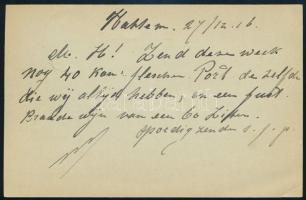 Hattem. 27/12.16.
M. H! Zend deze week
nog 40 kan: flesschen Port de zelfde
die wij altijd hebben, en een fust
Brandewijn van een 60 Liter.
spoedig zenden s.f.p.